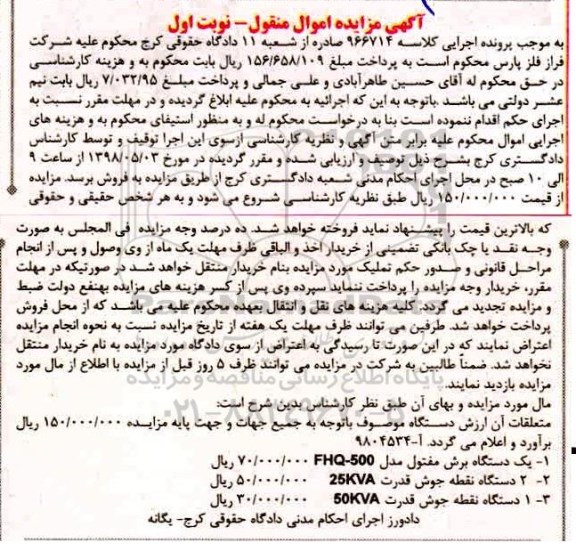 آگهی مزایده اموال منقول– نوبت اول
به موجب پرونده اجرایی کلاسه ۹۶۶۷۱۴ صادره از شعبه ۱۱ دادگاه حقوقی کرج محکوم علیه شرکت
فراز فلز پارس محکوم است به پرداخت مبلغ ۱۵۶/۶۵۸/۱۰۹ ریال بابت محکوم به و هزینه کارشناسی
در حق محکوم له آقای حسین طاهرآبادی و علی جمالی و پرداخت مبلغ ۷/۰۳۲/۹۵ ریال بابت نیم
عشر دولتی می باشد .باتوجه به این که اجرائیه به محکوم علیه ابلاغ گردیده و در مهلت مقرر نسبت به
اجرای حکم اقدام ننموده است بنا به درخواست محکوم له و به منظور استیفای محکوم به و هزینه های
اجرایی اموال محکوم علیه برابر متن آگهی و نظریه کارشناسی ازسوی این اجرا توقیف و توسط کارشناس
دادگستری کرج بشرح ذیل توصیف و ارزیابی شده و مقرر گردیده در مورخ ۱۳۹۸/۰۵/۰۳ از ساعت ۹
الی ۱۰ صبح در محل اجرای احکام مدنی شعبه دادگستری کرج از طریق مزایده به فروش برسد. مزایده
از قیمت ۱۵۰/۰۰۰/۰۰۰ ریال طبق نظریه کارشناسی شروع می شود و به هر شخص حقیقی و حقوقی
که بالاترین قیمت را پیشنهاد نماید فروخته خواهد شد. ده درصد وجه مزایده فی المجلس به صورت
وجه نقد یا چک بانکی تضمینی از خریدار اخذ و الباقی ظرف مهلت یک ماه از وی وصول و پس از انجام
مراحل قانونی و صدور حکم تملیک مورد مزایده بنام خریدار منتقل خواهد شد در صورتیکه در مهلت
مقرر، خریدار وجه مزایده را پرداخت ننماید سپرده وی پس از کسر هزینه های مزایده بهنفع دولت ضبط
و مزایده تجدید می گردد. کلیه هزینه های نقل و انتقال بعهده محکوم علیه می باشد که از محل فروش
پرداخت خواهد شد. طرفین می توانند ظرف مهلت یک هفته از تاریخ مزایده نسبت به نحوه انجام مزایده
اعتراض نمایند که در این صورت تا رسیدگی به اعتراض از سوی دادگاه مورد مزایده به نام خریدار منتقل
نخواهد شد. ضمناً طالبین به شرکت در مزایده می توانند ظرف ۵ روز قبل از مزایده با اطلاع از مال مورد
مزایده بازدید نمایند.
مال مورد مزایده و بهای آن طبق نظر کارشناس بدین شرح است:
متعلقات آن ارزش دستگاه موصوف باتوجه به جمیع جهات و جهت پایه مزایده ۱۵۰/۰۰۰/۰۰۰ ریال
برآورد و اعلام می گردد. آ-۹۸۰۴۵۳۴
۱- یک دستگاه برش مفتول مدل FHQ-500 ۷۰/۰۰۰/۰۰۰ ریال
۲- ۲ دستگاه نقطه جوش قدرت 25KVA ۵۰/۰۰۰/۰۰۰ ریال
۳- ۱ دستگاه نقطه جوش قدرت 50KVA ۳۰/۰۰۰/۰۰۰ ریال
دادورز اجرای احکام مدنی دادگاه حقوقی کرج- یگانه